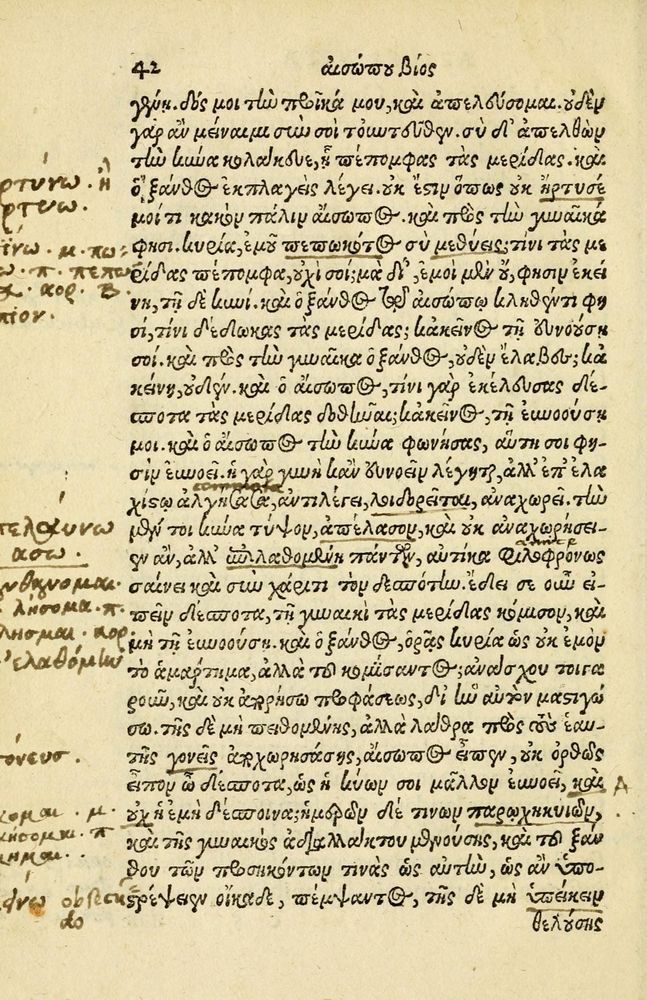 42 αἰσώπου βίος
γεύη. δός μοι τὴν προῖκά μου, καὶ ἀπελεύσομαι. οὐδὲν
γὰρ ἂν μείναιμι σὺν σοὶ τοὐντεῦθεν. σὺ δ' ἀπελθὼν
τὴν κύνα κολάκευε, ᾗ πέπομφας τὰς μερίδας. καὶ
ὁ ξάνθος ἐκπλαγεὶς λέγει. οὐκ ἔστιν ὅπως οὐκ ἤρτυσέ
μοί τι κακὸν πάλιν αἴσωπος. καὶ πρὸς τὴν γυναῖκά
φησι. κυρία, ἐμοῦ πεπωκότος σὺ μεθύεις; τίνι τὰς με
ρίδας πέπομφα, οὐχὶ σοί; μὰ δί', ἐμοὶ μὲν οὔ, φησὶν ἐκεί
νη, τῇ δὲ κυνί. καὶ ὁ ξάνθος τῷ αἰσώπῳ κληθέντι φη
σί, τίνι δέδωκας τὰς μερίδας; κἀκεῖνος τῇ εὐνούσῃ
σοι. καὶ πρὸς τὴν γυναῖκα ὁ ξάνθος, οὐδὲν ἔλαβες; κἀ
κείνη, οὐδέν. καὶ ὁ αἴσωπος, τίνι γὰρ ἐκέλευσας δέ-
σποτα τὰς μερίδας δοθῆναι; κἀκεῖνος, τῇ εὐνοούσῃ
μοι. καὶ ὁ αἴσωπος τὴν κύνα φωνήσας, αὕτη σοι φη-
σὶν εὐνοεῖ. ἡ γὰρ γυνὴ κἂν εὐνοεῖν λέγηται, ἀλλ' ἐπ' ἐλα
χίστῳ ἀλγήσασα, ἀντιλέγει, λοιδορεῖται, ἀναχωρεῖ. τὴν
μέν τοι κύνα τύψον, ἀπέλασον, καὶ οὐκ ἀναχωρήσει-
εν ἄν, ἀλλ' ἐπιλαθομένη πάντων, αὐτίκα φιλοφρόνως
σαίνει καὶ σὺν χάριτι τὸν δεσπότην. ἔδει σε οὖν εἰ-
πεῖν δέσποτα, τῇ γυναικὶ τὰς μερίδας κόμισον, καὶ
μὴ τῇ εὐνοούσῃ. καὶ ὁ ξάνθος, ὁρᾷς κυρία ὡς οὐκ ἐμὸν
τὸ ἁμάρτημα, ἀλλὰ τοῦ κομίσαντος; ἀνάσχου τοιγα
ροῦν, καὶ οὐκ ἀπορήσω προφάσεως, δι' ἣν αὐτὸν μαστιγώ
σω. τῆς δὲ μὴ πειθομένης, ἀλλὰ λάθρα πρὸς τοὺς ἑαυ-
τῆς γονεῖς ἀναχωρησάσης, αἴσωπος εἶπεν, οὐκ ὀρθῶς
εἶπον ὦ δέσποτα, ὡς ἡ κύων σοι μᾶλλον εὐνοεῖ, καὶ
οὐχ ἡ ἐμὴ δέσποινα; ἡμερῶν δέ τινων παρῳχηκυιῶν,
καὶ τῆς γυναικὸς ἀδιαλλάκτου μενούσης, καὶ τοῦ ξάν
θου τῶν προσηκόντων τινὰς ὡς αὐτὴν, ὡς ἂν ὑπο-
στρέψειεν οἴκαδε, πέμψαντος, τῆς δὲ μὴ ὑπείκειν
θελούσης